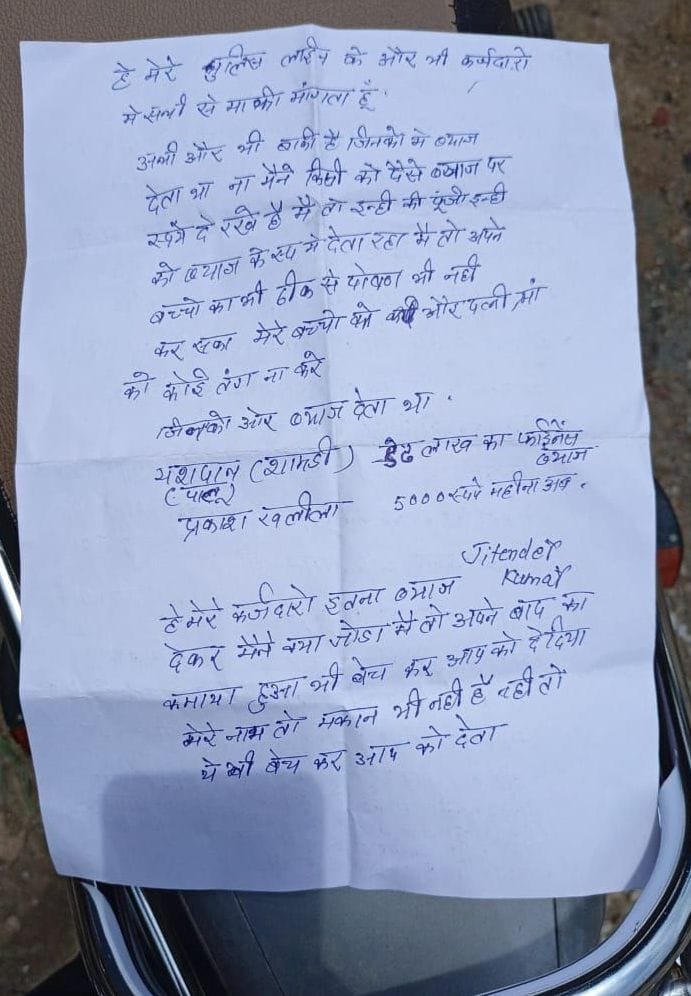 हे मेरे पुलिस लाईन के और भी कर्जदारो
मे सभी से माफी मांगता हूँ.
अभी और भी बाकी है जिनको मे ब्याज
देता था ना मैने किसी को पैसे ब्याज पर
रूपये दे रखे है मै तो इन्ही की पूंजी इन्ही
को ब्याज के रूप मे देता रहा मै तो अपने
बच्चो का भी ठीक से पोषण भी नही
कर सका मेरे बच्चो को और पत्नी मां
को कोई तंग ना करे
जिनको ओर ब्याज देता था.
यशपाल (शामडी) डेढ लाख का फाईनेंस
(पालू) ब्याज
प्रकाश खलीला 5000 रूपये महीना अब.
Jitender
Kumar
हे मेरे कर्जदारो इतना ब्याज
देकर मैने क्या जोडा मै तो अपने बाप का
कमाया हुआ भी बेच कर आप को दे दिया
मेरे नाम तो मकान भी नही है नही तो
ये भी बेच कर आप को देता